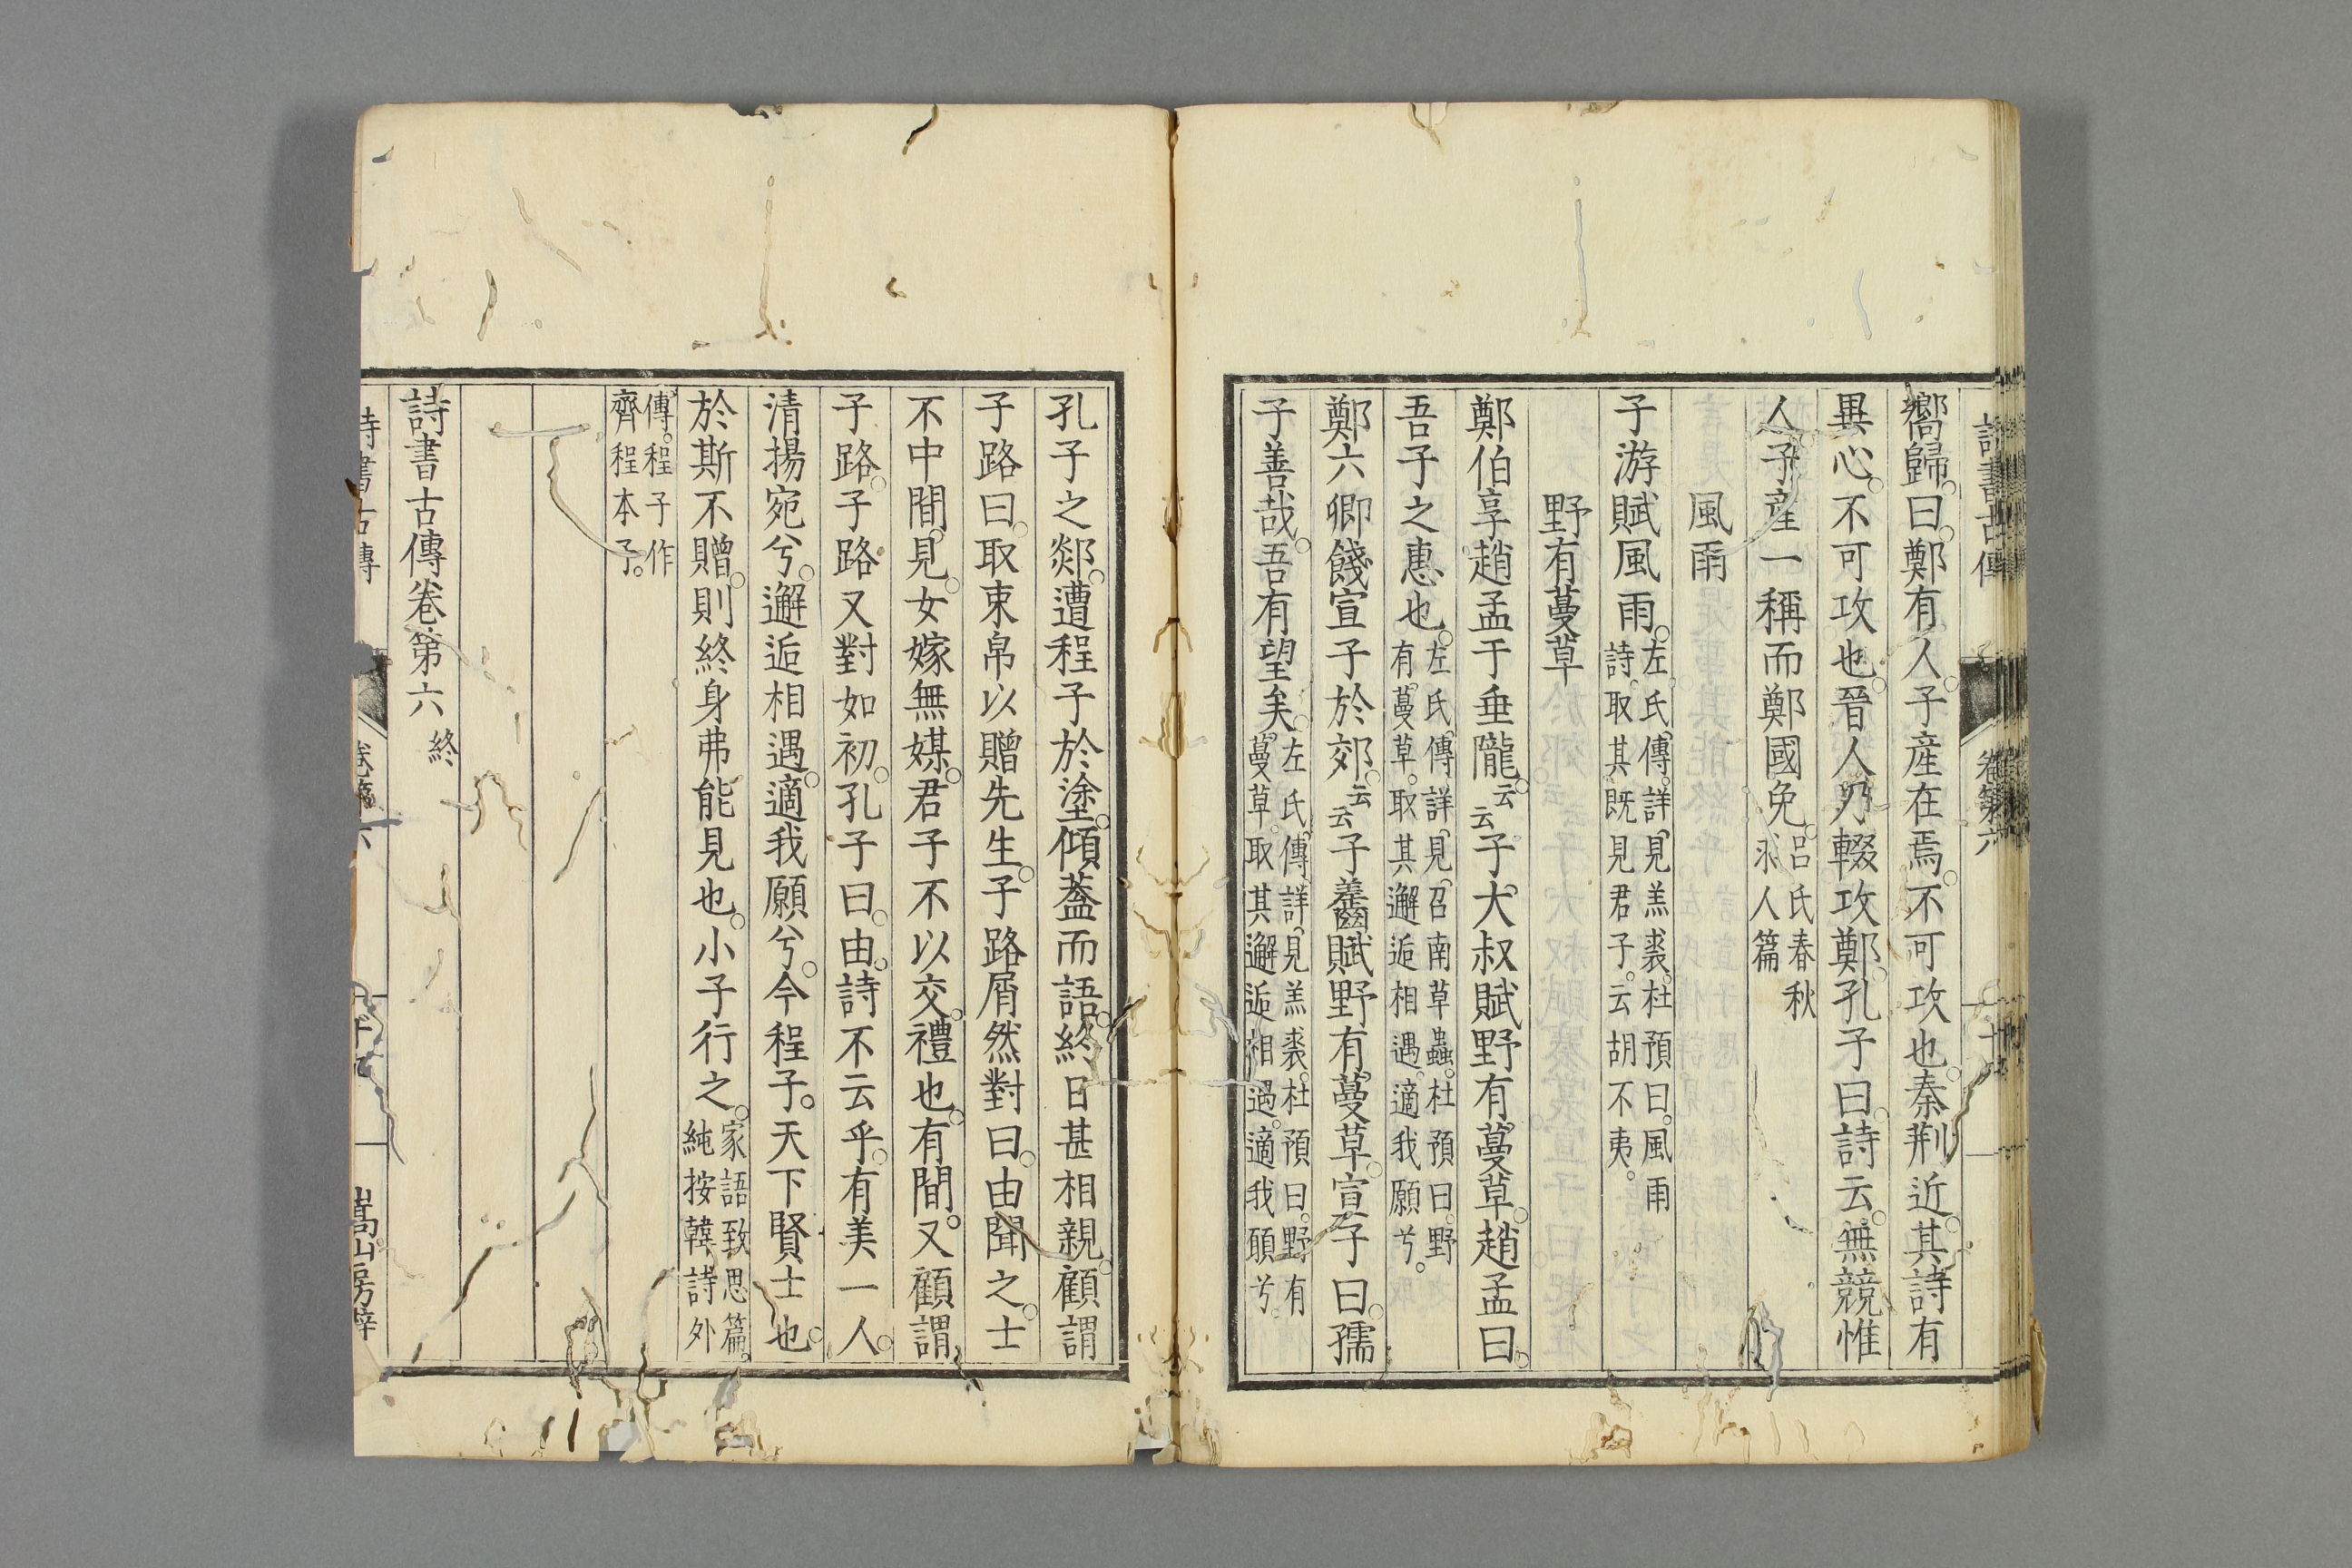 詩書古傳 卷第六
嚮歸。曰。鄭有人。子產在焉。不可攻也。秦荆近。其詩有
異心。不可攻也。晉人乃輟攻鄭。孔子曰。詩云。無競惟
人。子產一稱而鄭國免。呂氏春秋求人篇
風雨
子游賦風雨。左氏傳。詳見羔裘。杜預曰。風雨詩。取其既見君子。云胡不夷。
野有蔓草
鄭伯享趙孟于垂隴。云云子大叔賦野有蔓草。趙孟曰。
吾子之惠也。左氏傳。詳見召南草蟲。杜預曰。野有蔓草。取其邂逅相遇。適我願兮。
鄭六卿餞宣子於郊。云云子齹賦野有蔓草。宣子曰。孺
子善哉。吾有望矣。左氏傳。詳見羔裘。杜預曰。野有蔓草。取其邂逅相遇。適我願兮
孔子之郯。遭程子於塗。傾蓋而語。終日甚相親。顧謂
子路曰。取束帛以贈先生。子路屑然對曰。由聞之。士
不中間見。女嫁無媒。君子不以交。禮也。有間。又顧謂
子路。子路又對如初。孔子曰。由。詩不云乎。有美一人。
清揚宛兮。邂逅相遇。適我願兮。今程子。天下賢士也。
於斯不贈。則終身弗能見也。小子行之。家語致思篇。純按韓詩外
傳。程子作齊程本子。
詩書古傳卷第六 終
詩書古傳 卷第六 嵩山房梓